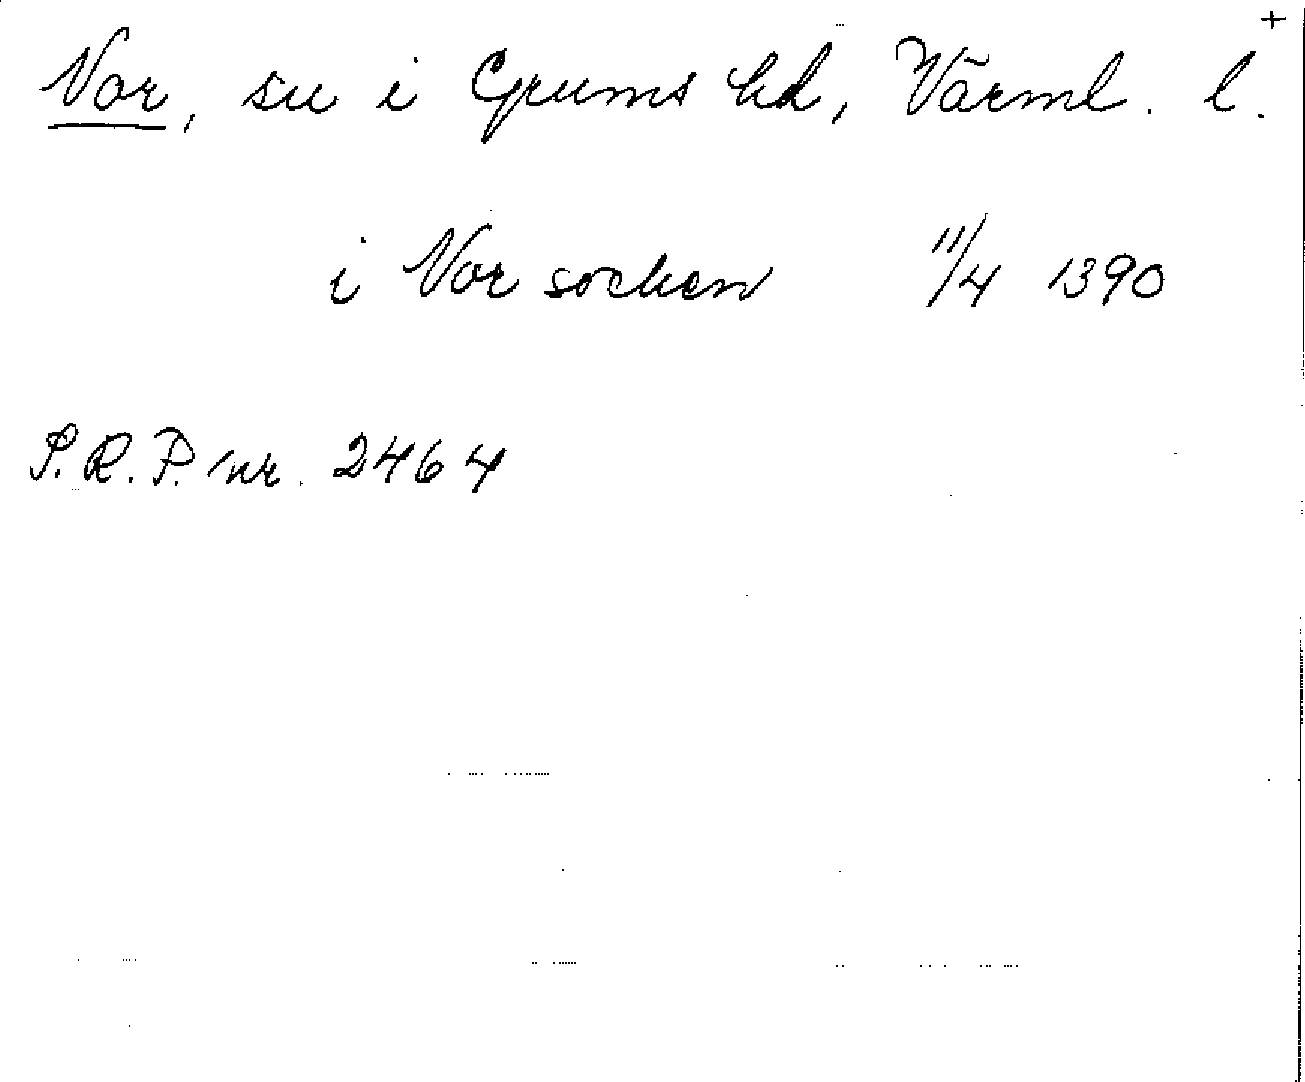 +
Nor, sn i Grums hd, Värml. l.
i Nor socken 11/4 1390
S.R.P. nr. 2464